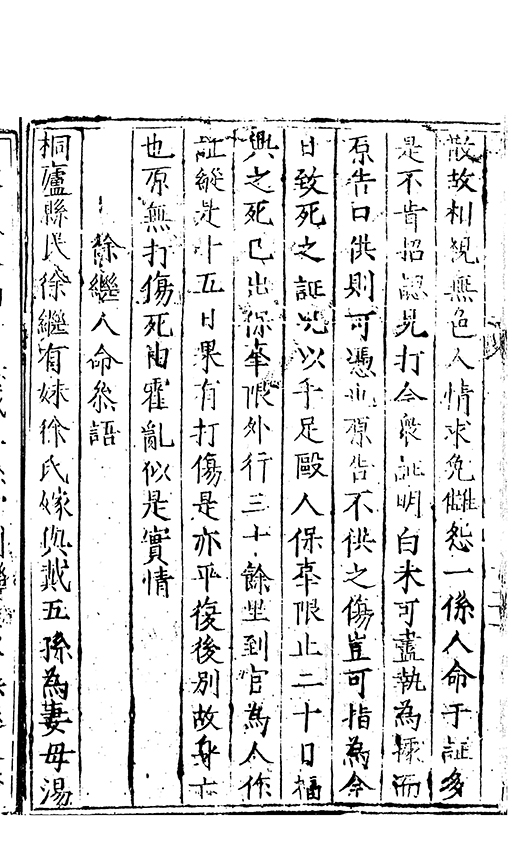 散故相覩無色人情求免雠怨一係人命于証多
是不肯招認見打今衆証明白未可盡執為據而
原告口供則可憑也原告不供之傷豈可指為今
日致死之証況以手足毆人保辜限止二十日福
興之死已出保辜限外行三十餘里到官為人作
証縱是十五日果有打傷是亦平復後別故身亡
也原無打傷死由霍亂似是實情
徐繼人命參語
桐廬縣民徐繼有妹徐氏嫁與戴五孫為妻母湯